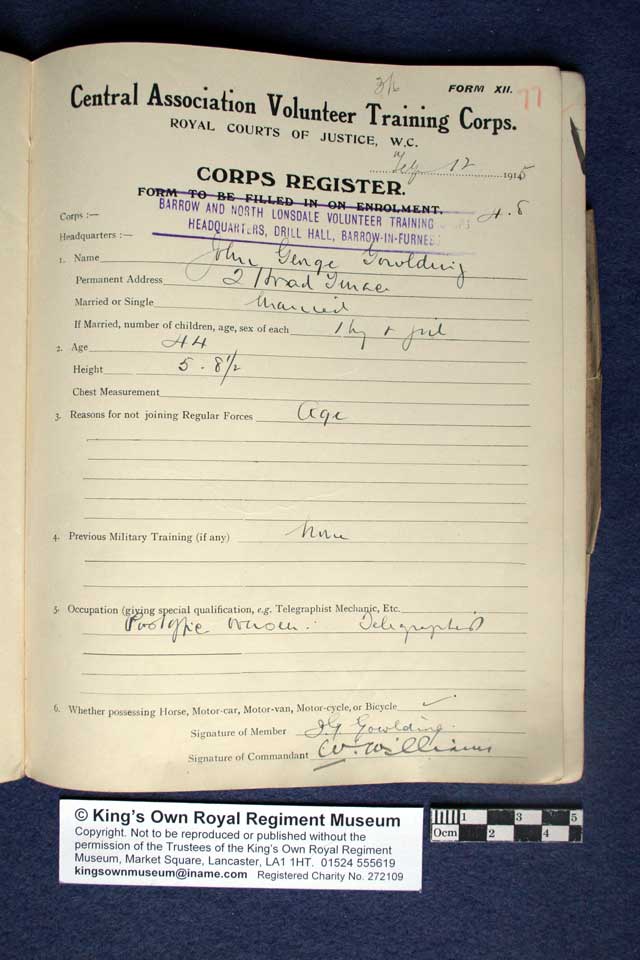 3/6
FORM XII. 77
Central Association Volunteer Training Corps.
ROYAL COURTS OF JUSTICE, W.C.
Feby 12 1915
CORPS REGISTER.
FORM TO BE FILLED IN ON ENROLMENT.
4.8
Corps :— BARROW AND NORTH LONSDALE VOLUNTEER TRAINING
Headquarters :— HEADQUARTERS, DRILL HALL, BARROW-IN-FURNE
1. Name John George Gowlding
Permanent Address 2 Road Terrace
Married or Single Married
If Married, number of children, age, sex of each 1 boy + girl
2. Age 44
Height 5. 8½
Chest Measurement
3. Reasons for not joining Regular Forces Age
4. Previous Military Training (if any) None
5. Occupation (giving special qualification, e.g. Telegraphist Mechanic, Etc.
Post Office Telegraphist
6. Whether possessing Horse, Motor-car, Motor-van, Motor-cycle, or Bicycle ✓
Signature of Member J G Gowlding.
Signature of Commandant W. Williams
© King's Own Royal Regiment Museum
Copyright. Not to be reproduced or published without the
permission of the Trustees of the King's Own Royal Regiment
Museum, Market Square, Lancaster, LA1 1HT. 01524 555619
kingsownmuseum@iname.com Registered Charity No. 272109
1 3 5
0cm 2 4